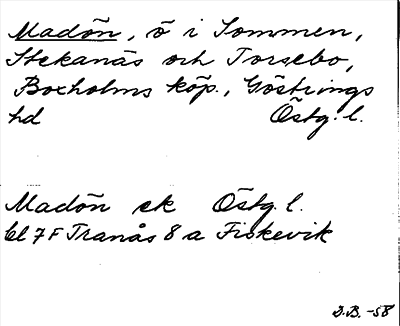 Madön, ö i Sommen,
Stekanäs och Torsebo,
Boxholms köp., Göstrings
hd Östg. l.
Madön ek Östg. l.
bl 7 F Tranås 8 a Fiskevik
D.B. -58